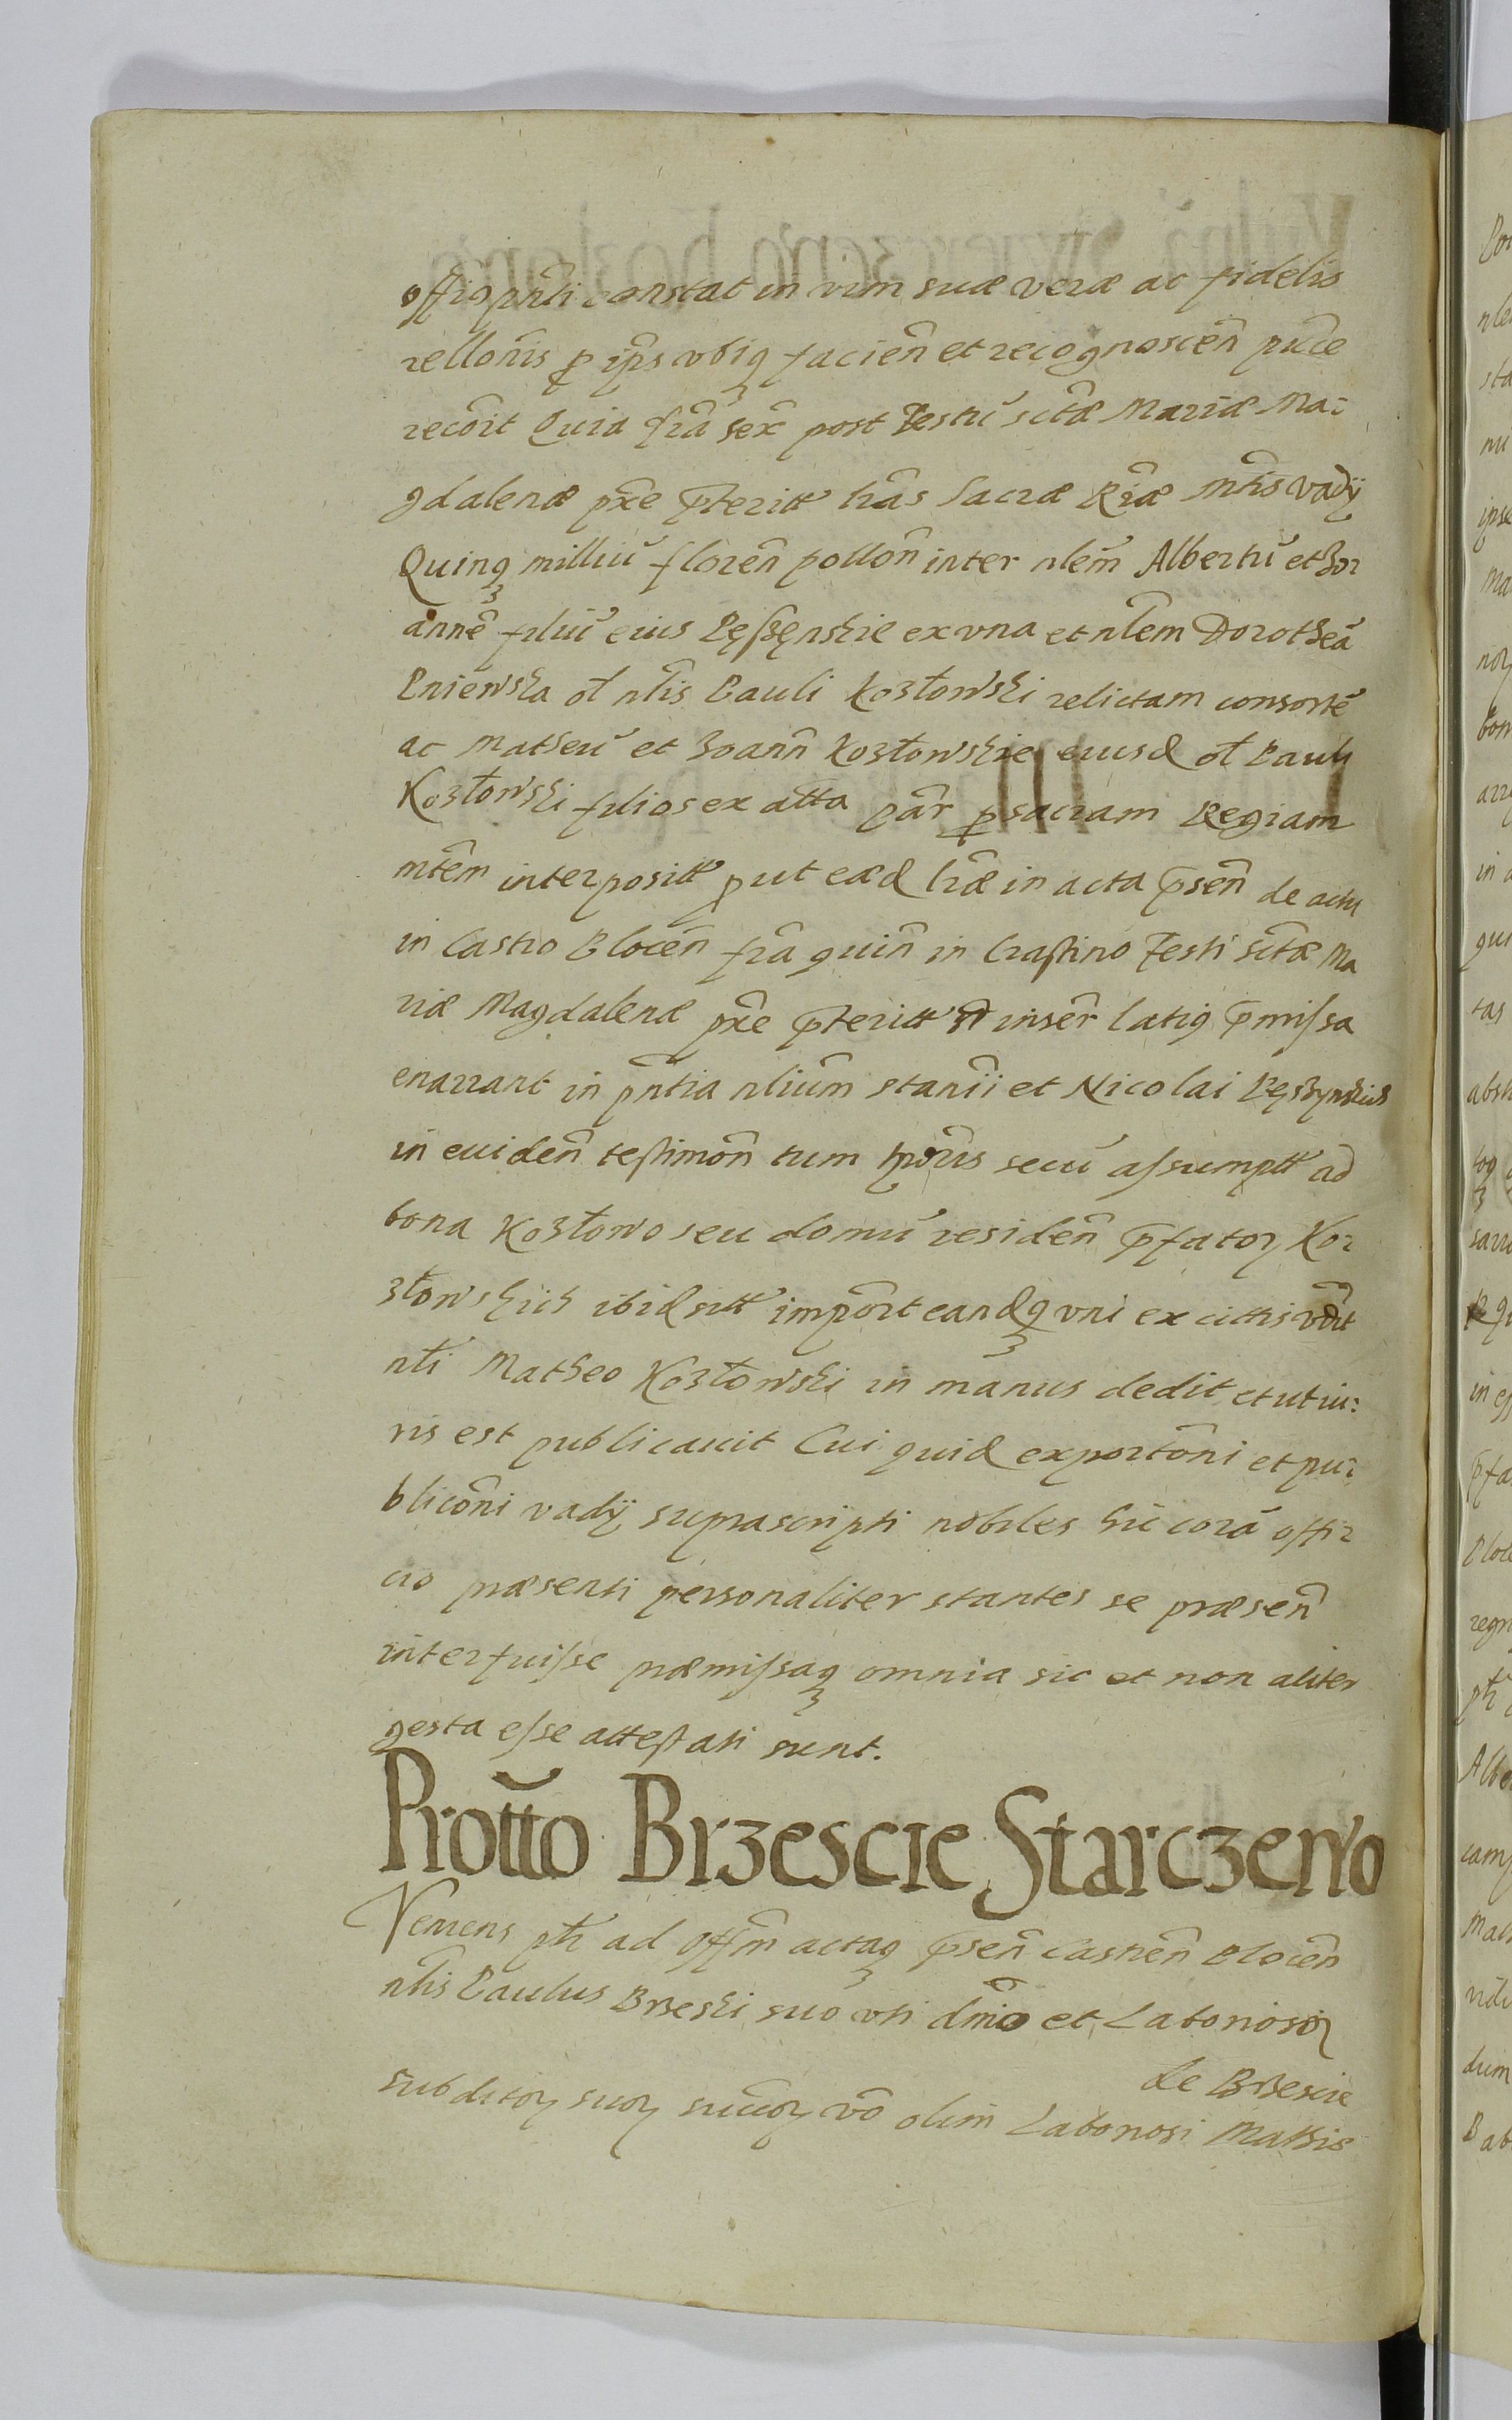 offio pnti constat in vim suæ veræ ac fidelis
rellonis ꝑ ips vbiqꝫ facien̄ et recognoscen̄ puce
recōit Quia fr̄a sex̄ post Festū sctæ Mariæ Ma-
gdalenæ pxe p̄teritt lr̄as Sacræ Riæ Mtis vadÿ
Quinqꝫ milliū floren̄ pollon̄ inter nlem̄ Albertū et Jo-
annē filiū eius Pęssęnskie ex vna et nlem̄ Dorotheā
Pniewska ol̄ nlis Pauli Kozłowski relictam consortē
ac Matheū et Joann̄ Kozłowskie eiusd ol̄ Pauli
Kozłowski filios ex altta pār ꝑ sacram Regiam
mtem̄ interpositt ꝓut eæd lr̄æ in acta p̄sen̄ de actu
in Castro Plocen̄ fr̄a quin̄ in Crastino Festi sctæ Ma
riæ Magdalenæ pxe p̄teritt inser̄ latiq p̄missa
enarrant in pn̄tia nlium̄ stanii et Nicolai Pęszynskich
in euiden̄ testimon̄ tum secū assumptt ad
bona Kozłowo seu domū residen̄ p̄fatoꝝ Ko-
złowskich ibid sitt impor̄t eandqꝫ vni ex cittis vdtt
nli Matheo Kozłowski in manus dedit et ut iu-
ris est publicauit Cui quid exportōni et pu-
blicōni vadÿ suprascripti nobiles hic corā offi-
cio præsenti personaliter stantes se præsen̄
interfuisse præmissaqꝫ omnia sic et non aliter
gesta esse attestati sunt.
Prottō Brzescie Starczewo
Veniens ptr̄ ad Offm̄ actaqꝫ p̄sen̄ Castren̄ Plocen̄
nlis Paulus Brzeski suo vti dmō et Laboriosoꝝ
de Brzescie
subditoꝝ suoꝝ suuoꝝ vō olim Laboriosi Mathie